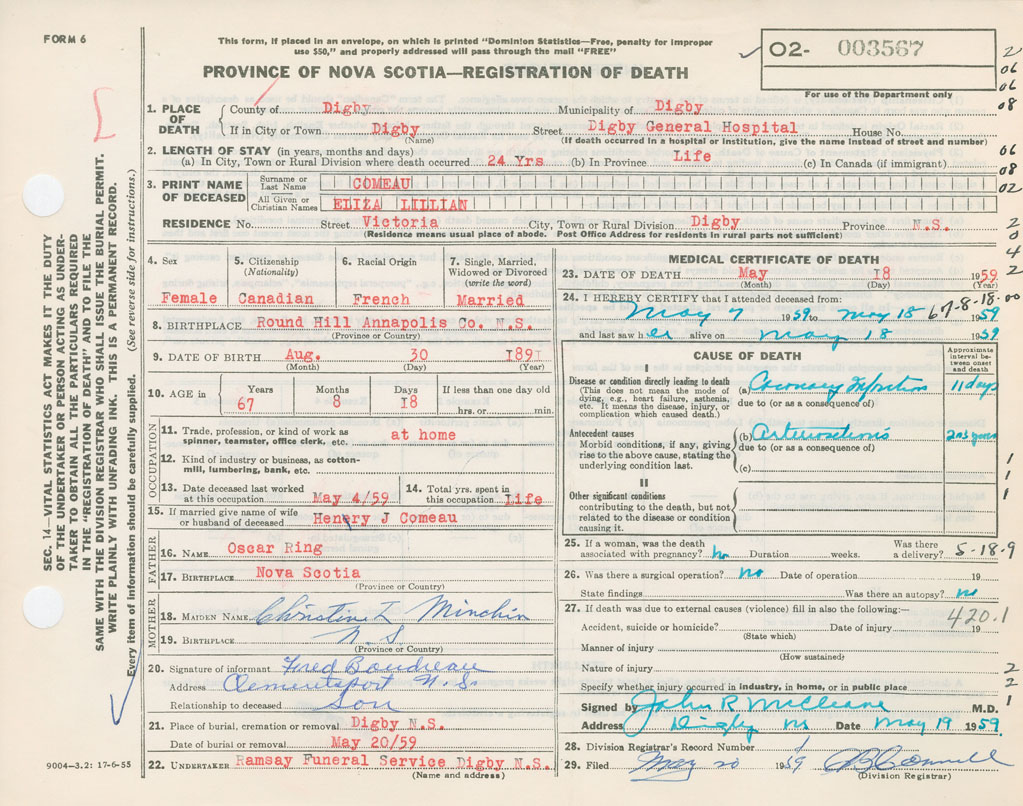 FORM 6
This form, if placed in an envelope, on which is printed "Dominion Statistics—Free, penalty for improper
use $50," and properly addressed will pass through the mail "FREE"
PROVINCE OF NOVA SCOTIA—REGISTRATION OF DEATH
02- 003567
For use of the Department only
SEC. 14—VITAL STATISTICS ACT MAKES IT THE DUTY
OF THE UNDERTAKER OR PERSON ACTING AS UNDER-
TAKER TO OBTAIN ALL THE PARTICULARS REQUIRED
IN THE "REGISTRATION OF DEATH" AND TO FILE THE
SAME WITH THE DIVISION REGISTRAR WHO SHALL ISSUE THE BURIAL PERMIT.
WRITE PLAINLY WITH UNFADING INK. THIS IS A PERMANENT RECORD.
Every item of information should be carefully supplied. (See reverse side for instructions.)
1. PLACE OF DEATH
County of Digby Municipality of Digby
If in City or Town Digby Street Digby General Hospital House No.
(Name) (If death occurred in a hospital or institution, give the name instead of street and number)
2. LENGTH OF STAY (in years, months and days)
(a) In City, Town or Rural Division where death occurred 24 Yrs (b) In Province Life (c) In Canada (if immigrant)
3. PRINT NAME OF DECEASED
Surname or Last Name COMEAU
All Given or Christian Names ELIZA LILLIAN
RESIDENCE No. Street Victoria City, Town or Rural Division Digby Province N.S.
(Residence means usual place of abode. Post Office Address for residents in rural parts not sufficient)
4. Sex Female
5. Citizenship (Nationality) Canadian
6. Racial Origin French
7. Single, Married, Widowed or Divorced (write the word) Married
8. BIRTHPLACE Round Hill Annapolis Co. N.S.
(Province or Country)
9. DATE OF BIRTH Aug. 30 1891
(Month) (Day) (Year)
10. AGE in Years 67 Months 8 Days 18 If less than one day old hrs. or min.
OCCUPATION
11. Trade, profession, or kind of work as spinner, teamster, office clerk, etc. at home
12. Kind of industry or business, as cotton-mill, lumbering, bank, etc.
13. Date deceased last worked at this occupation May 4/59
14. Total yrs. spent in this occupation Life
15. If married give name of wife or husband of deceased Henery J Comeau
FATHER
16. NAME Oscar Ring
17. BIRTHPLACE Nova Scotia
(Province or Country)
MOTHER
18. MAIDEN NAME Christine L Minchin
19. BIRTHPLACE N S
(Province or Country)
20. Signature of informant Fred Boudreau
Address Clementsport N.S.
Relationship to deceased Son
21. Place of burial, cremation or removal Digby N.S.
Date of burial or removal May 20/59
22. UNDERTAKER Ramsay Funeral Service Digby N.S.
(Name and address)
9004-3.2: 17-6-55
MEDICAL CERTIFICATE OF DEATH
23. DATE OF DEATH May 18 1959
(Month) (Day) (Year)
24. I HEREBY CERTIFY that I attended deceased from:
May 7 1959 to May 18 1959
67-8-18-00
and last saw her alive on May 18 1959
CAUSE OF DEATH
Approximate interval between onset and death
I
Disease or condition directly leading to death
(This does not mean the mode of dying, e.g., heart failure, asthenia, etc. It means the disease, injury, or complication which caused death.)
(a) Coronary Infarction 11 days
due to (or as a consequence of)
Antecedent causes
Morbid conditions, if any, giving rise to the above cause, stating the underlying condition last.
(b)
due to (or as a consequence of)
(c)
II
Other significant conditions
contributing to the death, but not related to the disease or condition causing it.
25. If a woman, was the death associated with pregnancy? no Duration weeks. Was there a delivery?
5-18-9
26. Was there a surgical operation? no Date of operation 19
State findings Was there an autopsy? no
27. If death was due to external causes (violence) fill in also the following:—
420.1
Accident, suicide or homicide? Date of injury 19
(State which)
Manner of injury
(How sustained)
Nature of injury
Specify whether injury occurred in industry, in home, or in public place
Signed by John R McCleave M.D.
Address Digby NS Date May 19 1959
28. Division Registrar's Record Number
29. Filed May 20 1959
(Division Registrar)
2
06
06
08
06
08
02
2
0
4
2
1
1
1
2
2
1